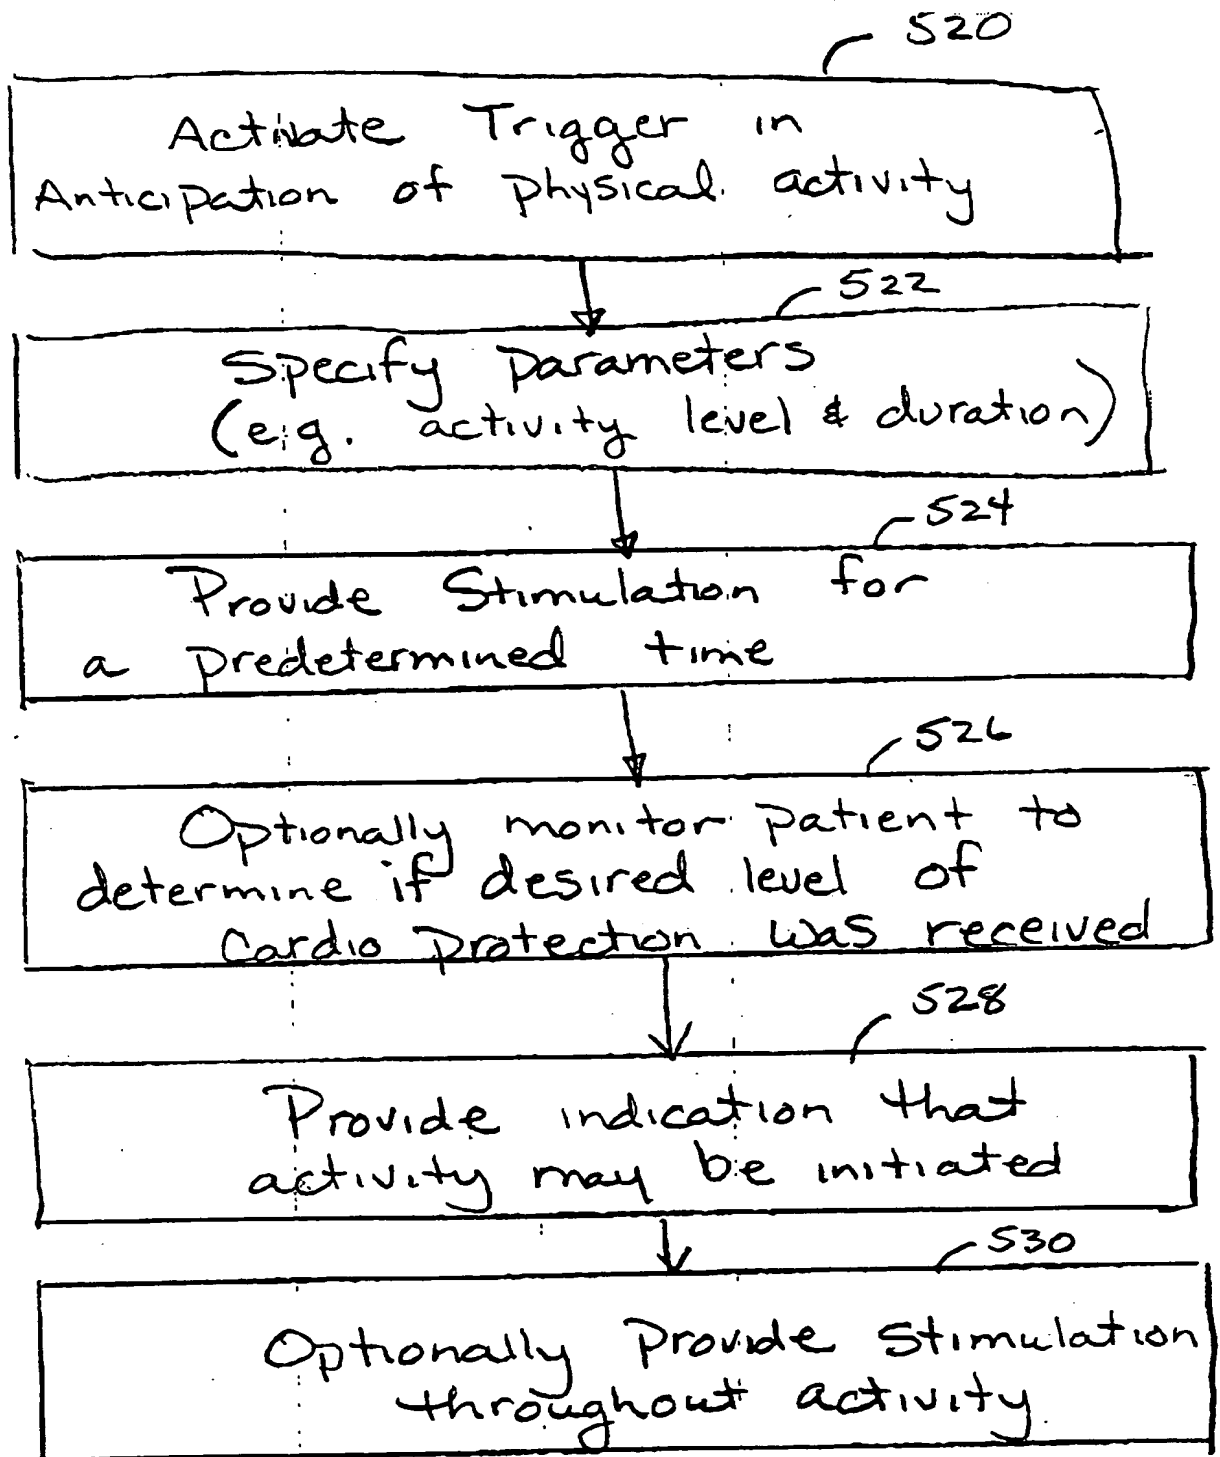 520
Activate Trigger in
Anticipation of physical activity
522
Specify parameters
(e.g. activity level & duration)
524
Provide Stimulation for
a predetermined time
526
Optionally monitor patient to
determine if desired level of
Cardio protection was received
528
Provide indication that
activity may be initiated
530
Optionally Provide Stimulation
throughout activity